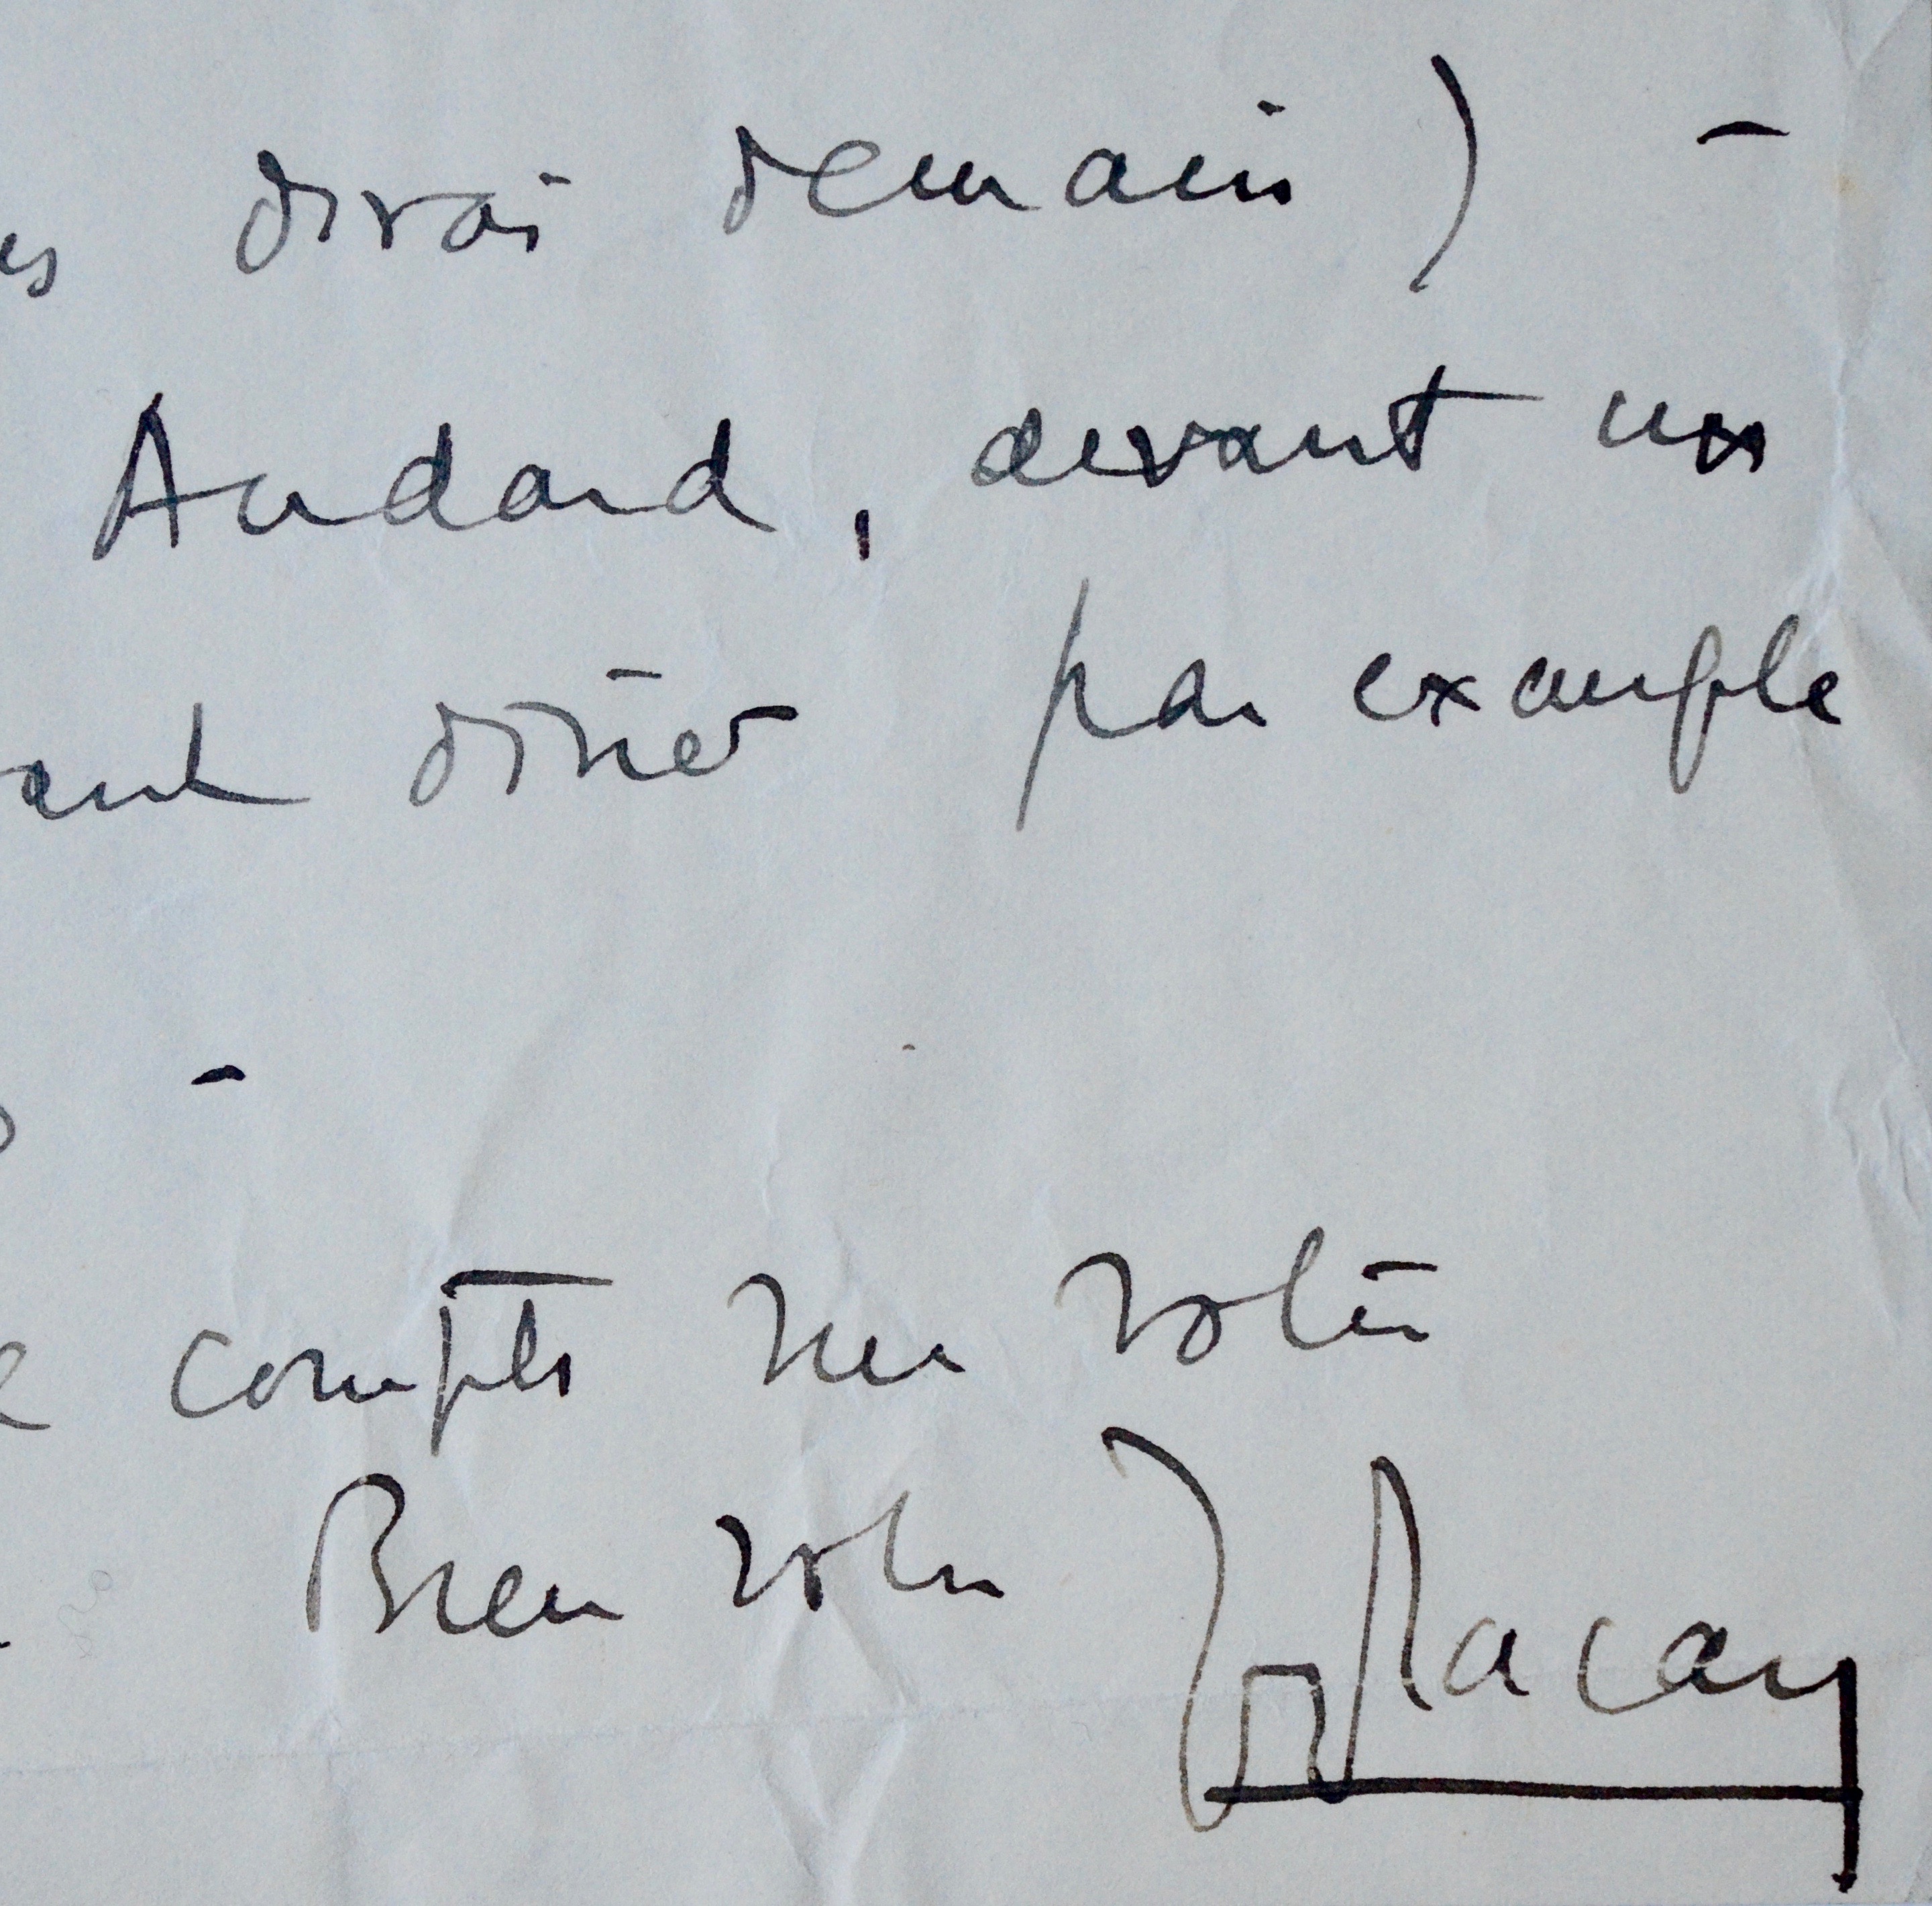 es dirai demain) -
Audard, devant un
ant dîner par exemple
-
compte sur votre
Bien votre J Lacan